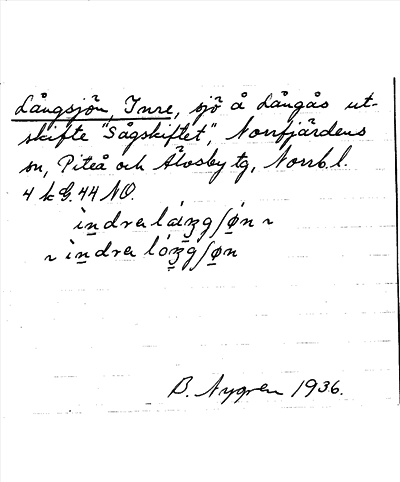 Långsjön, Inre, sjö å Långås ut-
skifte "Sågskiftet", Norrfjärdens
sn, Piteå och Älvsby tg, Norrb. l.
4 k G. 44 NO.
ìndrα lάŋgʃøn ~
~ ìndrα lóŋgʃøn
B. Nygren 1936.